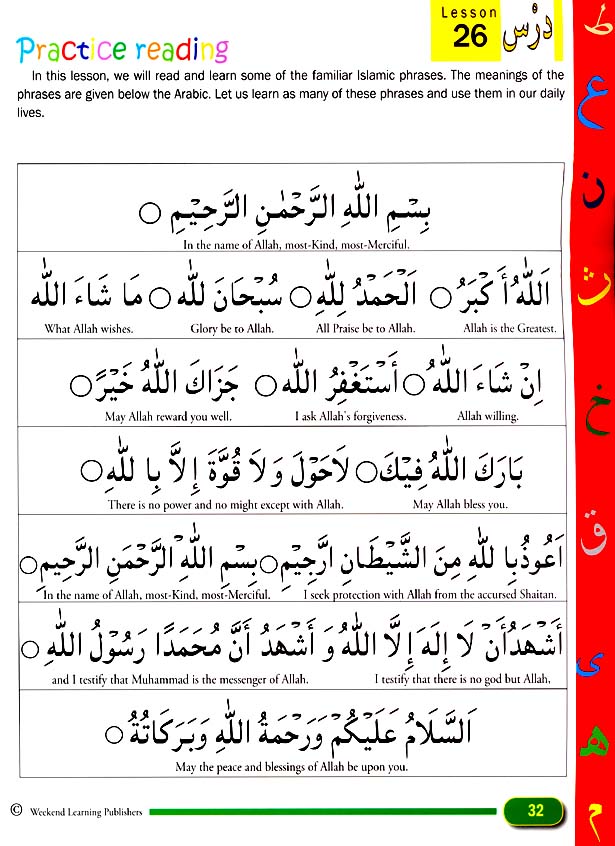 Lesson
26
درْس
Practice reading
In this lesson, we will read and learn some of the familiar Islamic phrases. The meanings of the
phrases are given below the Arabic. Let us learn as many of these phrases and use them in our daily
lives.
بِسْمِ اللّٰهِ الرَّحْمٰنِ الرَّحِيْمِ ○
In the name of Allah, most-Kind, most-Merciful.
اَللّٰهُ أَكْبَرُ ○ اَلْحَمْدُ لِلّٰهِ ○ سُبْحَانَ للّٰه ○ مَا شَاءَ اللّٰه
What Allah wishes. Glory be to Allah. All Praise be to Allah. Allah is the Greatest.
اِنْ شَاءَ اللّٰهُ ○ أَسْتَغْفِرُ اللّٰه ○ جَزَاكَ اللّٰهُ خَيْرًا ○
May Allah reward you well. I ask Allah's forgiveness. Allah willing.
بَارَكَ اللّٰهُ فِيْكَ ○ لَاحَوْلَ وَلَا قُوَّةَ إِلَّا بِا للّٰهِ ○
There is no power and no might except with Allah. May Allah bless you.
اَعُوذُبِا للّٰهِ مِنَ الشَّيْطَانِ ارَّجِيْمِ ○ بِسْمِ اللّٰهِ الرَّحْمَنِ الرَّحِيْمِ ○
In the name of Allah, most-Kind, most-Merciful. I seek protection with Allah from the accursed Shaitan.
أَشْهَدُأَنْ لَا إِلَهَ إِلَّا اللّٰهُ وَ أَشْهَدُ أَنَّ مُحَمَدًا رَسُوْلُ اللّٰهِ ○
and I testify that Muhammad is the messenger of Allah. I testify that there is no god but Allah,
اَلسَّلَامُ عَلَيْكُمْ وَرَحْمَةُ اللّٰهِ وَبَرَكَاتُهُ ○
May the peace and blessings of Allah be upon you.
© Weekend Learning Publishers
32
ط
ع
ن
ث
خ
ق
ى
ه
م